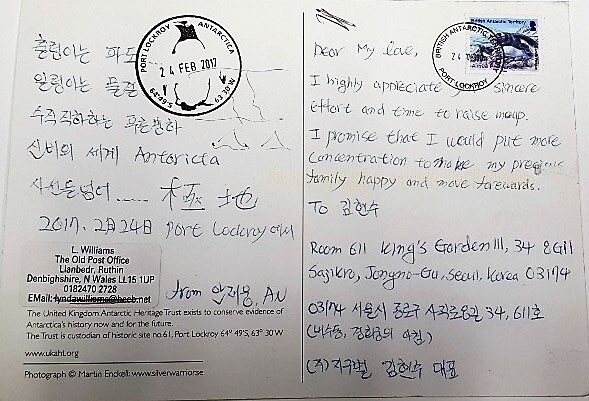 출렁이는 파도
일렁이는 물결
수직직하하는 푸른빙하
신비의 세계 Antarcita
시선들넘어...... 極地
2017. 2月24日 Port Lockroy에서
from 안재용, AN
PORT LOCKROY ANTARCTICA
24 FEB 2017
64°49'S 63°30'W
L. Williams
The Old Post Office
Llanbedr, Ruthin
Denbighshire, N Wales LL15 1UP
0182470 2728
EMail:
The United Kingdom Antarctic Heritage Trust exists to conserve evidence of
Antarctica's history now and for the future.
The Trust is custodian of historic site no.61, Port Lockroy 64° 49'S, 63° 30 W
www.ukaht.org
Photograph © Martin Enckell: www.silverwarriorse
British Antarctic Territory
BRITISH ANTARCTIC
PORT LOCKROY
Dear My love,
I highly appreciate sincere
effort and time to raise meup.
I promise that I would put more
concentration to make my precious
family happy and move forewards.
To 김현수
Room 611 King's Garden III, 34 8Gil
Sajikro, Jongno-Gu, Seoul, Korea 03174
03174 서울시 종로구 사직로8길 34, 611호
(내수동, 경희궁의 아침)
(주)지구별 김현수 대표